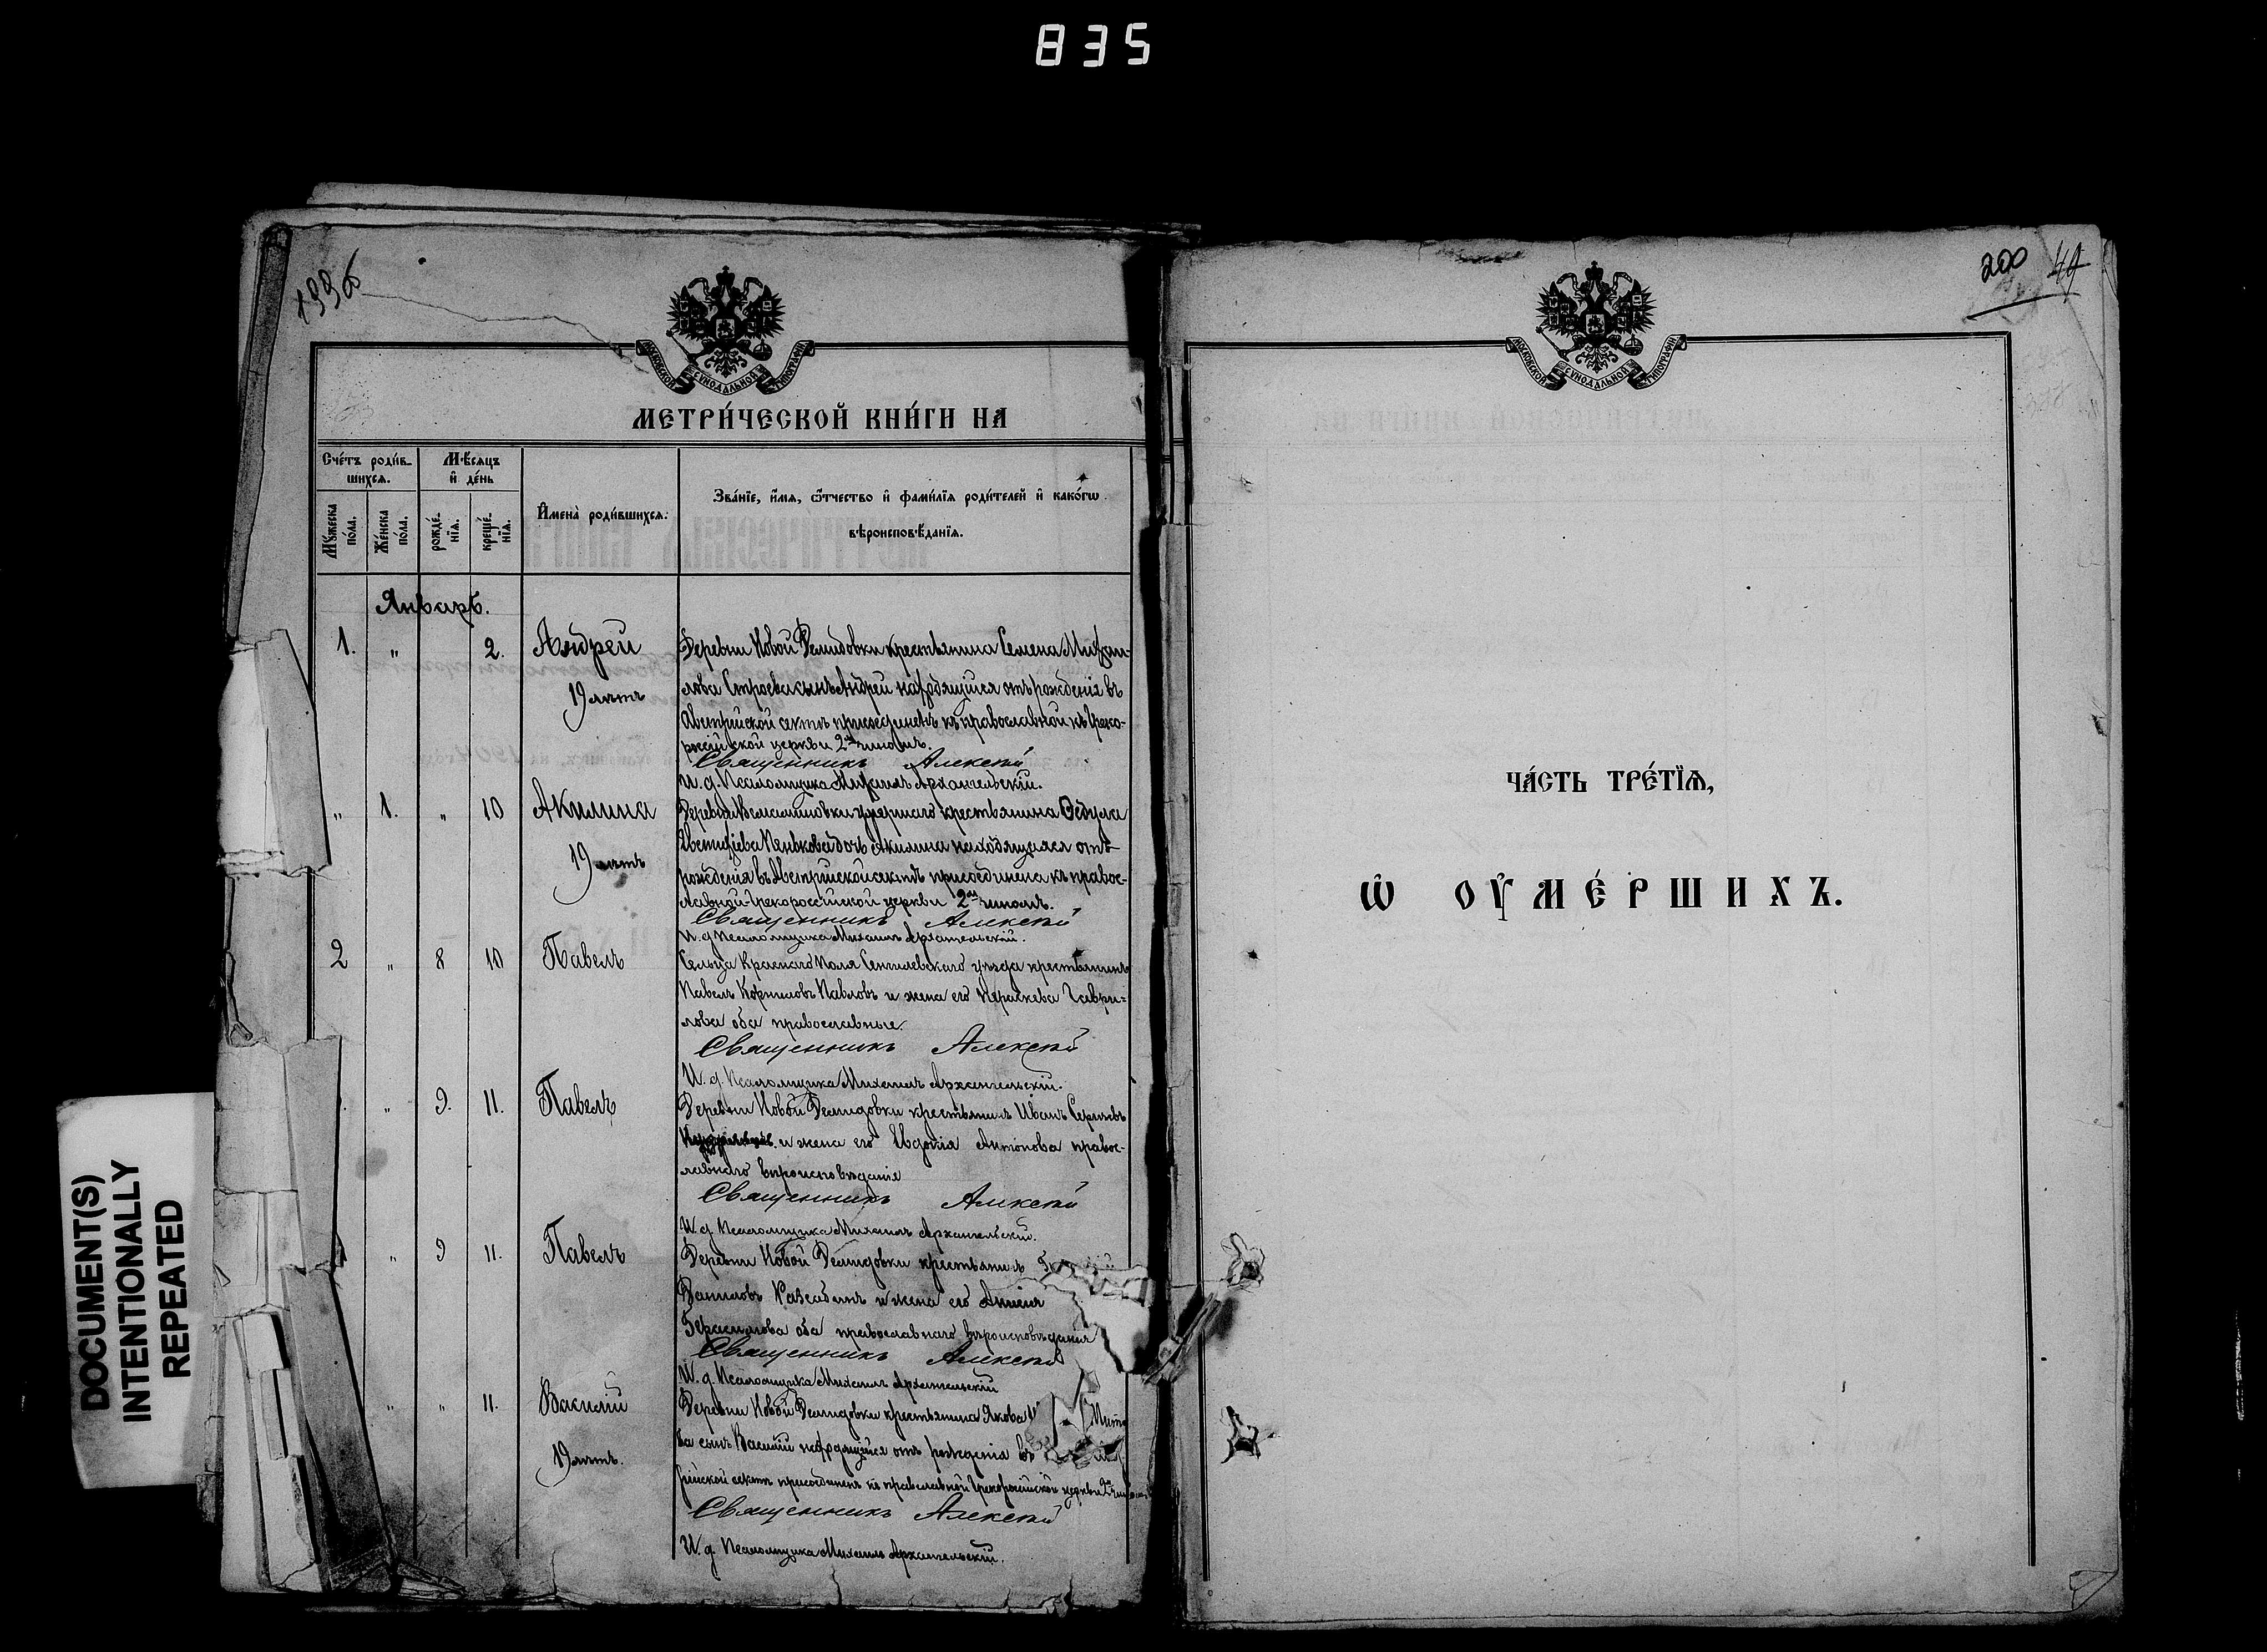 835
DOCUMENT(S)
INTENTIONALLY
REPEATED
199 об
МОСКОВСКОЙ СѴНОДАЛЬНОЙ ТИПОГРАФІИ
МЕТРИ́ЧЕСКОЙ КНИ́ГИ НА
Сче́тъ роди́в-
шихсѧ.
Мѣ́сѧцъ
и҆ де́нь
И҆мена̀ роди́вшихсѧ.
Зва́нїе, и҆́мѧ, ѻ҆́тчество и҆ фами́лїѧ роди́телей и҆ како́гѡ
вѣроисповѣ́данїѧ.
Мꙋ́жеска
по́ла.
Же́нска
по́ла.
рожде́-
нїѧ.
креще́-
нїѧ.
Январь.
1. " 2. Андрей
19 лѣтъ
Деревни Новой Демидовки крестьянина Семена Михаи-
лова Строева сынъ Андрей находящійся отъ рожденія въ
Австрійской сектѣ присоединенъ къ православной къ Греко-
россійской церкви 2мъ чиномъ.
Священникъ Алексѣй
И. д. Псаломщика Михаилъ Архангельскій.
" 1. " 10 Акилина
19 лѣтъ
крестьянина Ѳедула
дочь Акилина находящаяся отъ
рожденія въ Австрійской сектѣ присоединена къ правос-
лавной Грекороссійской церкви 2мъ чиномъ.
Священникъ Алексѣй
И. д. Псаломщика Михаилъ Архангельскій.
2 " 8 10 Павелъ
Сельца Краснаго Поля Сенгилевскаго уѣзда крестьянинъ
Павелъ Корниловъ Павловъ и жена его Параскева Гаври-
лова оба православные.
Священникъ Алексѣй
И. д. Псаломщика Михаилъ Архангельскій.
" 9. 11. Павелъ
Деревни Новой Демидовки крестьянинъ Иванъ
и жена его Евдокія Антонова правос-
лавнаго вѣроисповѣданія
Священникъ Алексѣй
И. д. Псаломщика Михаилъ Архангельскій.
" 9 11. Павелъ
Деревни Новой Демидовки крестьянинъ
Даниловъ и жена его
Герасимова оба православнаго вѣроисповѣданія
Священникъ Алексѣй
И. д. Псаломщика Михаилъ Архангельскій
" " 11. Василій
19 лѣтъ.
Деревни Новой Демидовки крестьянина Якова
ва сынъ Василій находящійся отъ рожденія въ
рійской сектѣ присоединенъ къ православной Грекороссійской церкви 2мъ чиномъ
Священникъ Алексѣй
И. д. Псаломщика Михаилъ Архангельскій.
200 49
МОСКОВСКОЙ СѴНОДАЛЬНОЙ ТИПОГРАФІИ
ЧА́СТЬ ТРЕ́ТЇѦ,
Ѡ҆ ОУ҆МЕ́РШИХЪ.